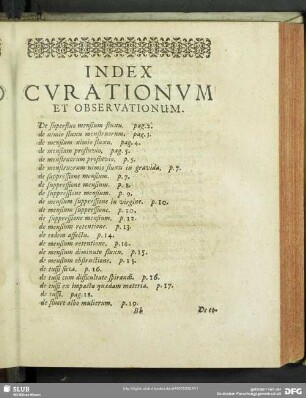 INDEX
CVRATIONVM
ET OBSERVATIONUM.
De superfluo mensium fluxu. pag.2.
de nimio fluxu menstruorum. pag.3.
de mensium nimio fluxu. pag.4.
de mensium profluvio. pag.5.
de menstruorum profluvio. p.5.
de menstruorum nimio fluxu in gravida. p.7.
de suppressione mensium. p.7.
de suppressione mensium. p.8.
de suppressione mensium. p.9.
de mensium suppressione in virgine. p.10.
de mensium suppressione. p.10.
de suppressione mensium. p.12.
de mensium retentione. p.13.
de eodem affectu. p.14.
de mensium retentione. p.14.
de mensium diminuto fluxu. p.15.
de mensium obstructione. p.15.
de tussi sicca. p.16.
de tussi cum difficultate spirandi. p.16.
de tussi ex impacta quadam materia. p.17.
de tussi. pag.18.
de fluore albo mulierum. p.19.
Bb De ex-
SLUB
Wir führen Wissen.
gefördert von der
Deutschen Forschungsgemeinschaft
DFG